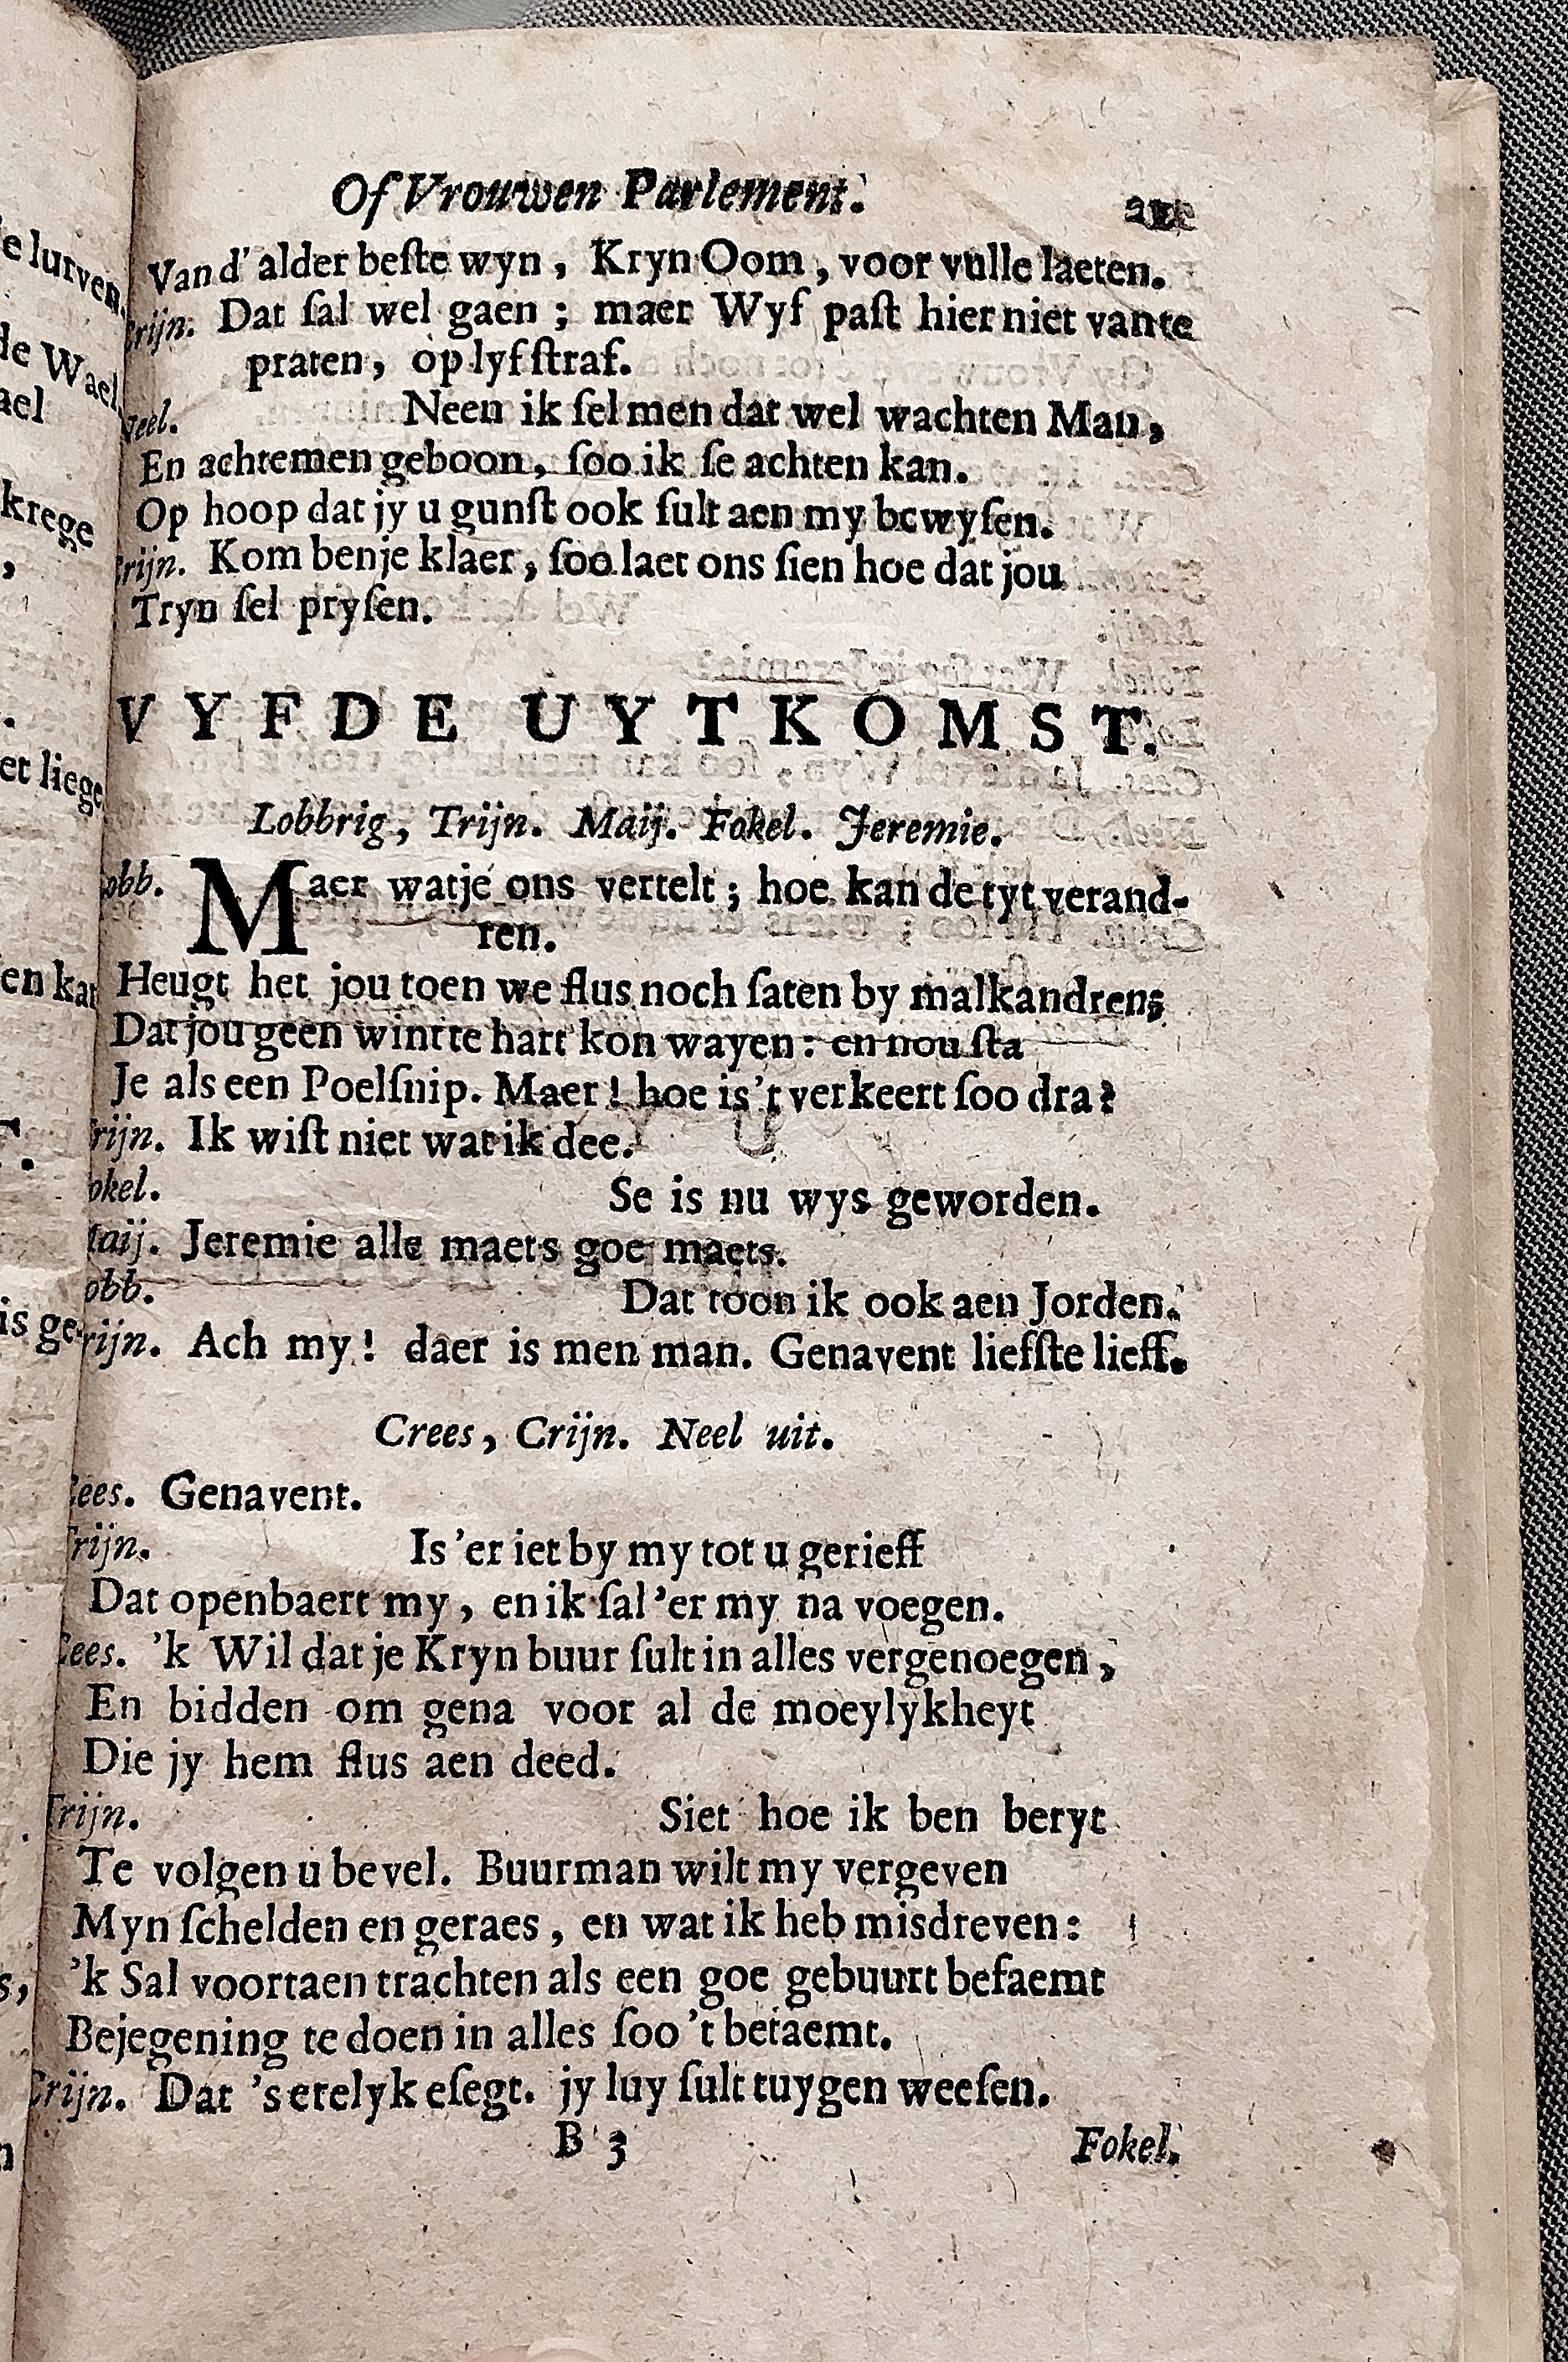 Of Vrouwen Parlement.
Van d' alder beſte wyn, Kryn Oom, voor vulle laeten.
Crijn. Dat ſal wel gaen; maer Wyf paſt hier niet van te
praten, op lyfſtraf.
Neel. Neen ik ſel men dat wel wachten Man,
En achtemen geboon, ſoo ik ſe achten kan.
Op hoop dat jy u gunſt ook ſult aen my bewyſen.
Crijn. Kom benje klaer, ſoo laet ons ſien hoe dat jou
Tryn ſel pryſen.
VYFDE UYTKOMST.
Lobbrig, Trijn. Maij. Fokel. Jeremie.
Lobb. Maer watje ons vertelt; hoe kan de tyt verand-
ren.
Heugt het jou toen we flus noch ſaten by malkandren;
Dat jou geen wint te hart kon wayen: en nou ſta
Je als een Poelſnip. Maer! hoe is 't verkeert ſoo dra?
Trijn. Ik wiſt niet wat ik dee.
Fokel. Se is nu wys geworden.
Maij. Jeremie alle maets goe maets.
Lobb. Dat toon ik ook aen Jorden.
Trijn. Ach my! daer is men man. Genavent liefſte lieff.
Crees, Crijn. Neel uit.
Cees. Genavent.
Trijn. Is 'er iet by my tot u gerieff
Dat openbaert my, en ik ſal 'er my na voegen.
Cees. 'k Wil dat je Kryn buur ſult in alles vergenoegen,
En bidden om gena voor al de moeylykheyt
Die jy hem flus aen deed.
Trijn. Siet hoe ik ben beryt
Te volgen u bevel. Buurman wilt my vergeven
Myn ſchelden en geraes, en wat ik heb misdreven:
'k Sal voortaen trachten als een goe gebuurt befaemt
Bejegening te doen in alles ſoo 't betaemt.
Crijn. Dat 's etelyk eſegt. jy luy ſult tuygen weeſen.
B 3 Fokel.